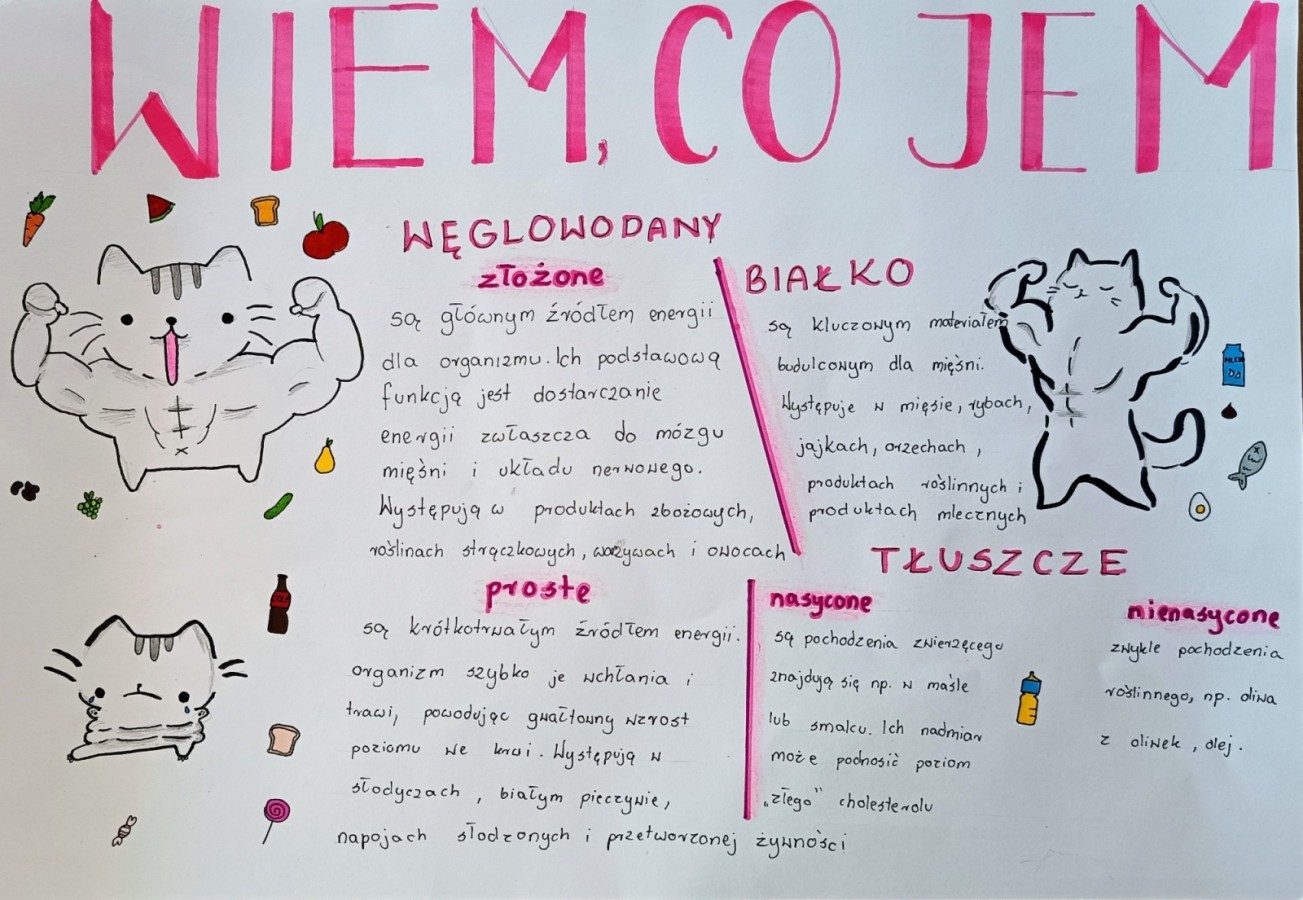 WIEM, CO JEM
WĘGLOWODANY
złożone
są głównym źródłem energii
dla organizmu. Ich podstawową
funkcją jest dostarczanie
energii zwłaszcza do mózgu
mięśni i układu nerwowego.
Występują w produktach zbożowych,
roślinach strączkowych, warzywach i owocach
proste
są krótkotrwałym źródłem energii.
organizm szybko je wchłania i
trawi, powodując gwałtowny wzrost
poziomu we krwi. Występują w
słodyczach, białym pieczywie,
napojach słodzonych i przetworzonej żywności
BIAŁKO
są kluczowym materiałem
budulcowym dla mięśni.
Występuje w mięsie, rybach,
jajkach, orzechach,
produktach roślinnych i
produktach mlecznych
TŁUSZCZE
nasycone
są pochodzenia zwierzęcego
znajdują się np. w maśle
lub smalcu. Ich nadmiar
może podnosić poziom
„złego" cholesterolu
nienasycone
zwykle pochodzenia
roślinnego, np. oliwa
z oliwek, olej.
COLA